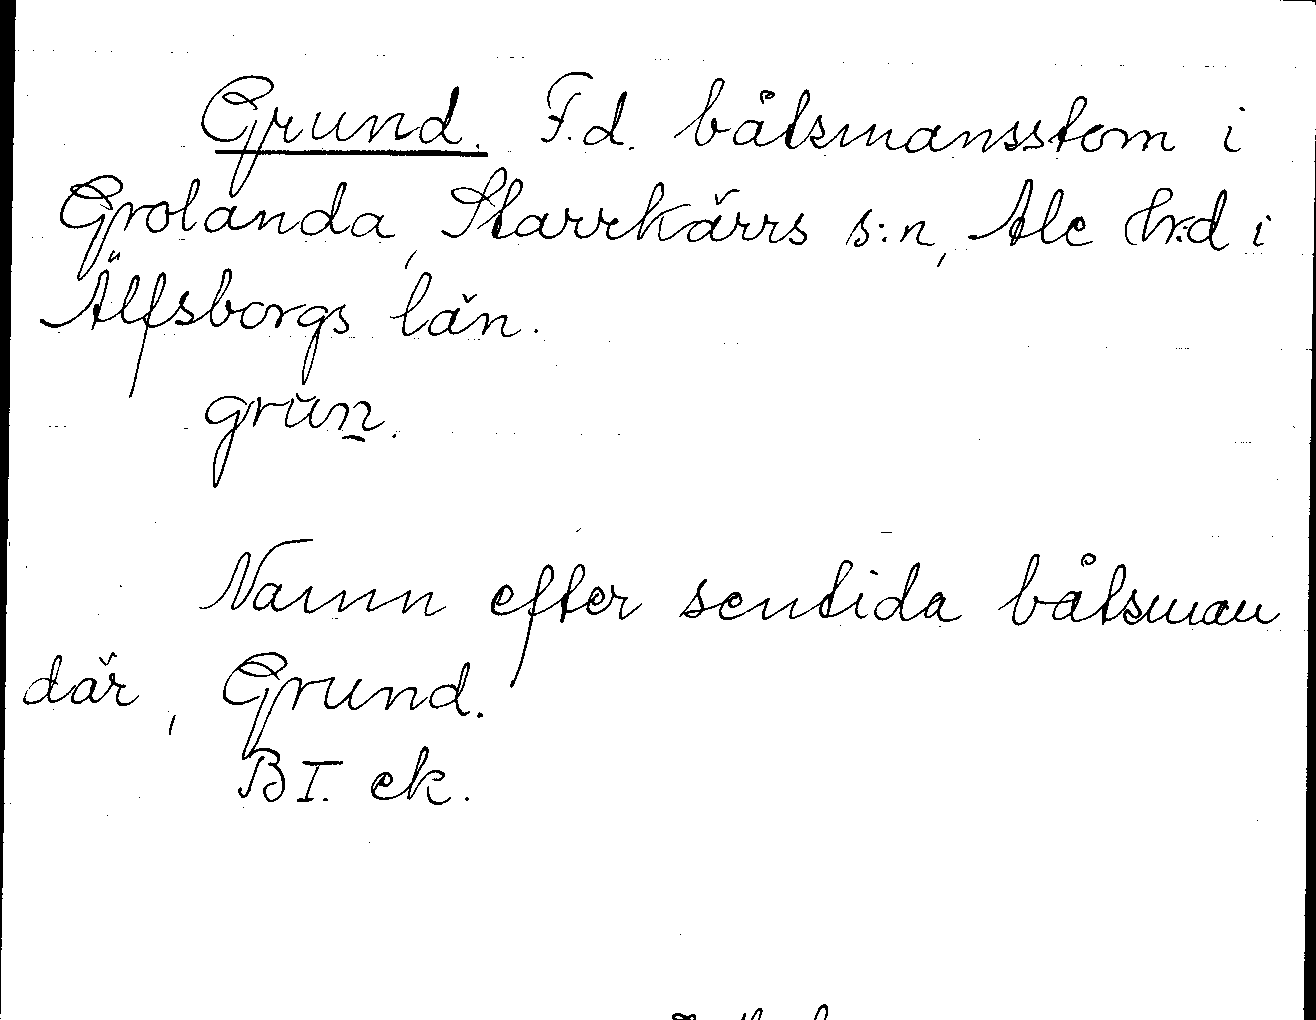 Grund. F.d. båtsmansstom i
Grolanda, Starrkärrs s:n, Ale hrd i
Älfsborgs län.
grŭn̲.
Namn efter sentida båtsman
där, Grund.
BI. ek.